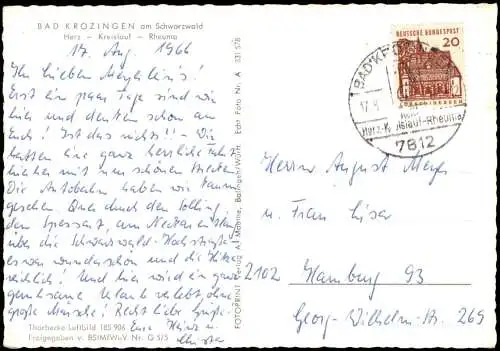 BAD KROZINGEN am Schwarzwald
Herz – Kreislauf – Rheuma
17. Aug. 1966
Ihr lieben Meyerleins!
Erst ein paar Tage sind wir
hier und denken schon an
Euch! Ist das nichts!! – Wir
hatten eine ganz herrliche Fahrt
hierher mit
Die Autobahn haben wir kaum
gesehen. Quer durch den Solling,
den Spessart, am Neckar
über die Schwarzwald-Hochstraße
es war wunderschön und die
reichlich! Und hier wird ein ganz
geruhsamer Urlaub verlebt, ohne
große Märsche! Recht liebe Grüße
Eure
Thorbecke-Luftbild 185 906
Freigegeben v. BStMfWuV. Nr. G 5/5
FOTOPRINT Verlag A. Balingen/Württ. Echt Foto Nr. A 331 578
DEUTSCHE BUNDESPOST
20
BAD KRO
Herz-Kreislauf-Rheuma
7812
Herrn August Meyer
u. Frau Lisa
2102 Hamburg 93
Georg-Wilhelm-Str. 269